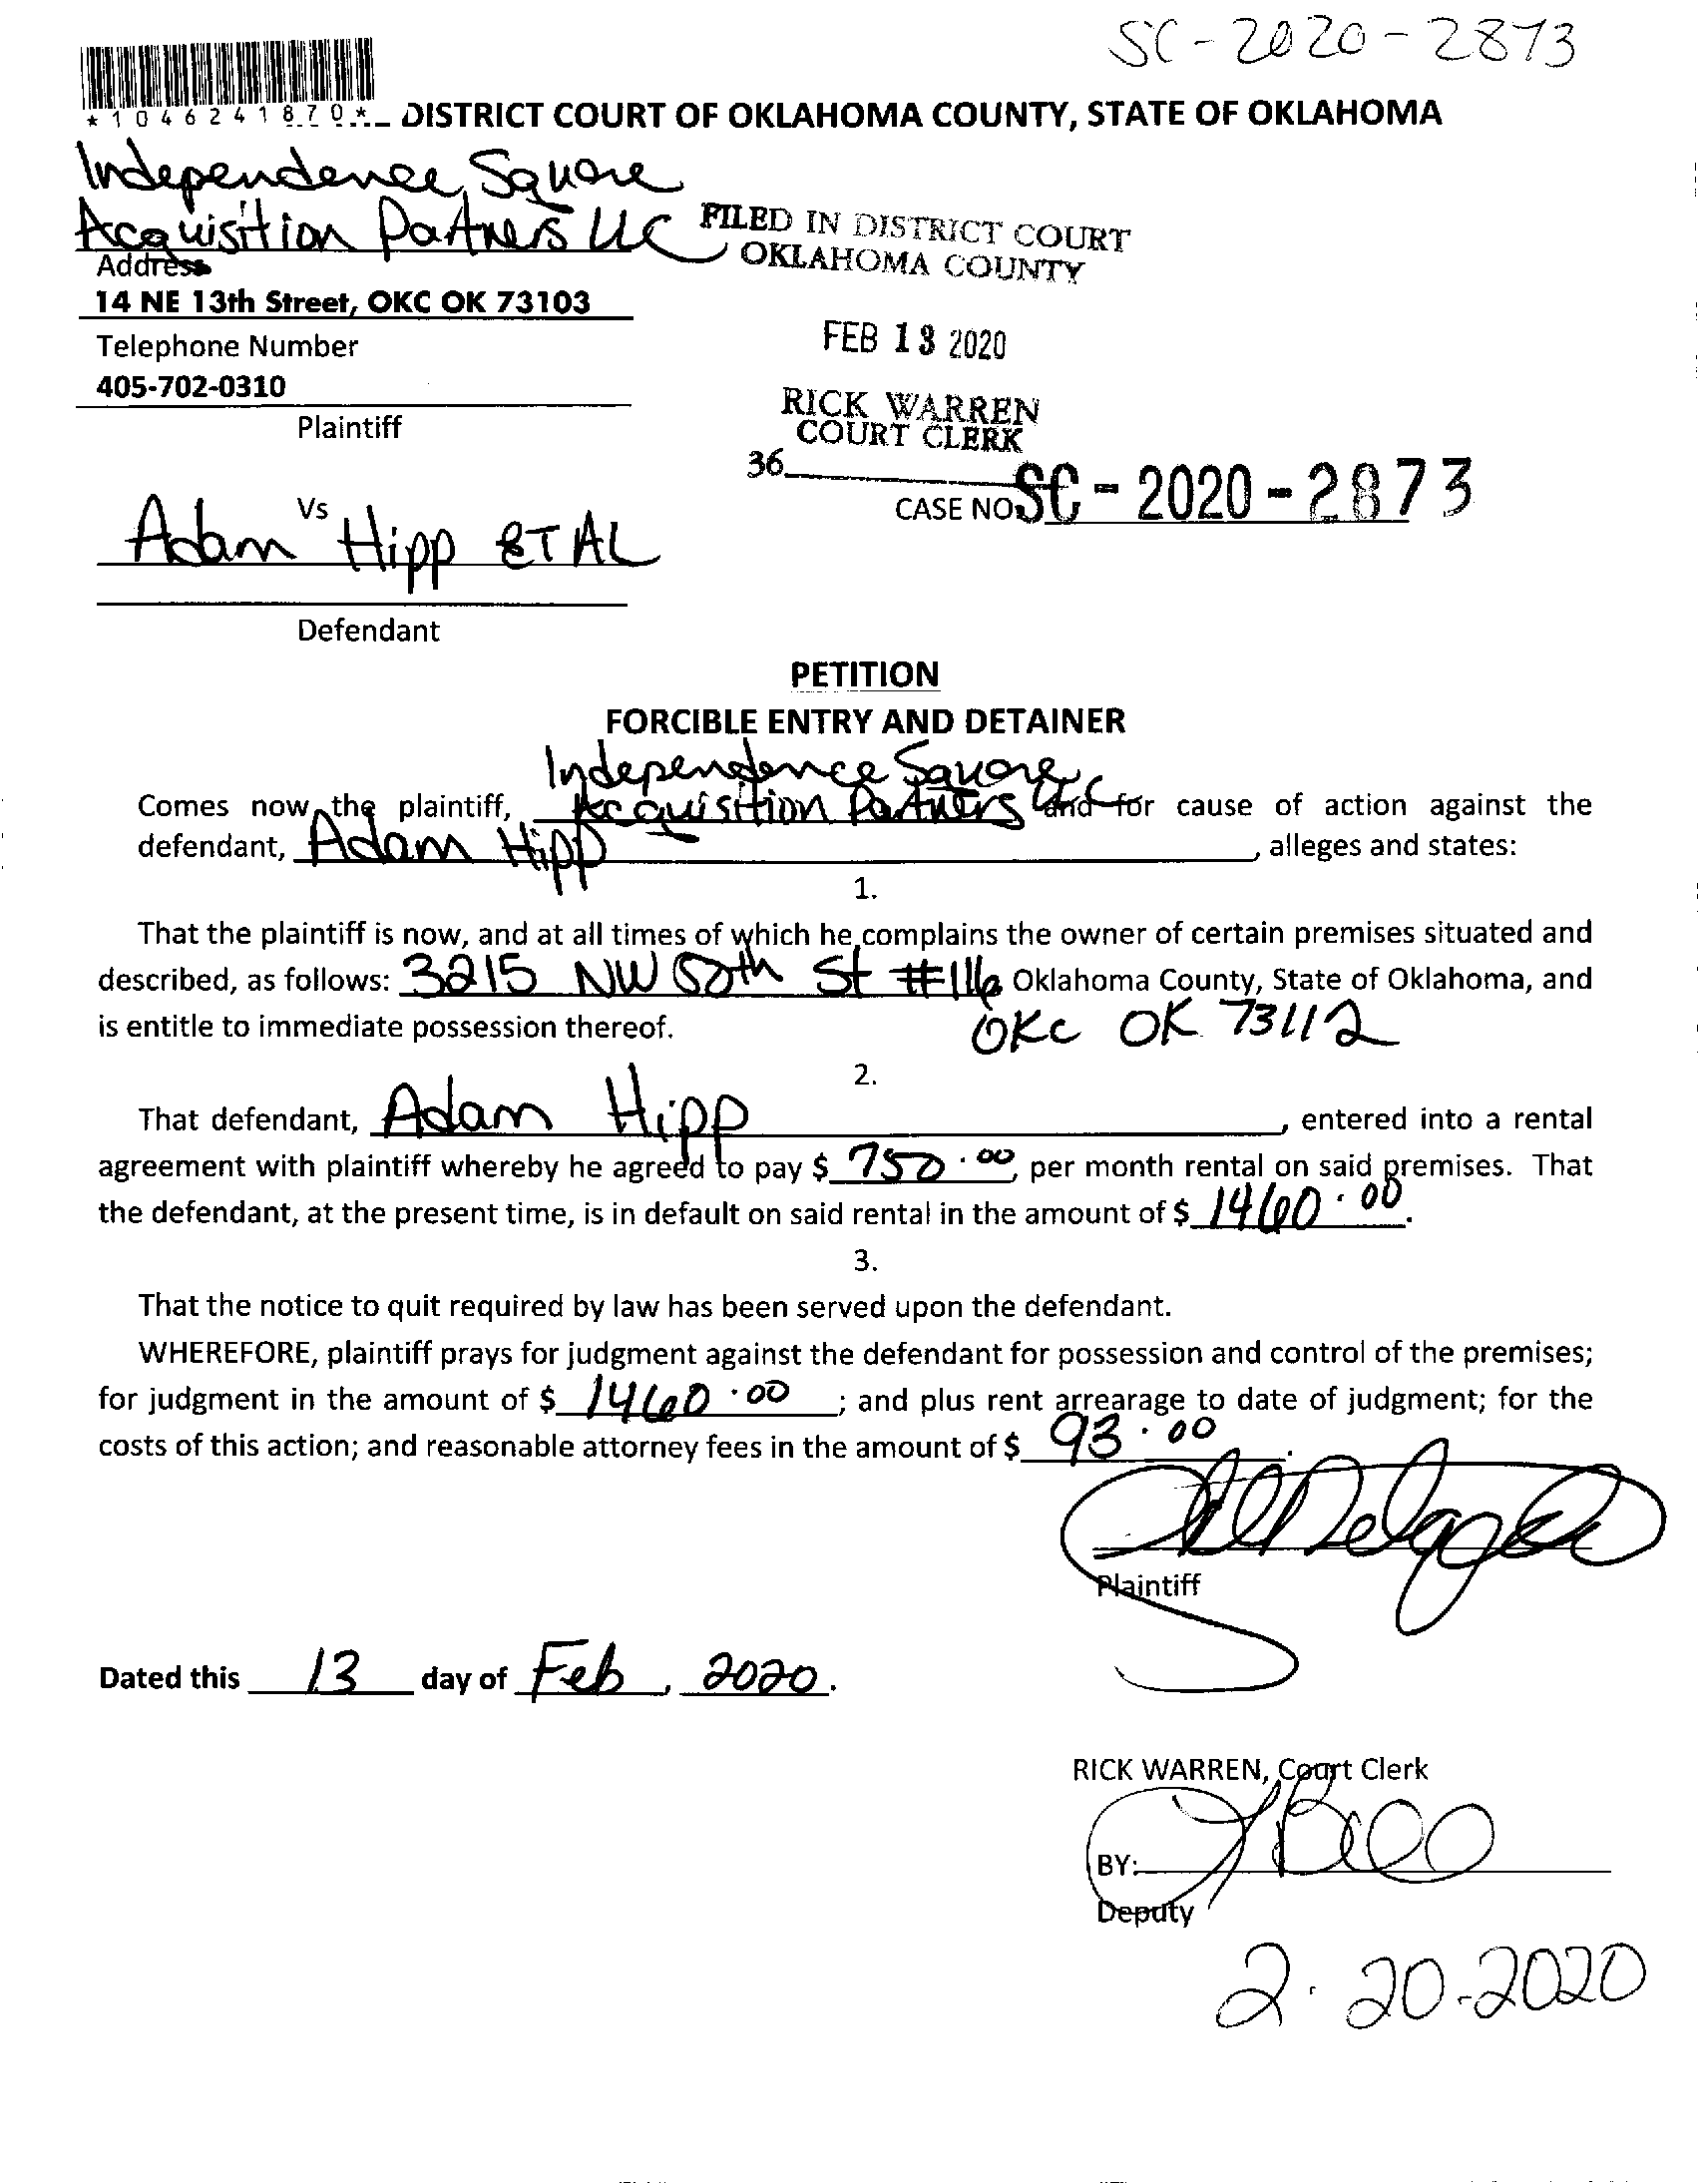 SC-2020-2873
*1046241870* DISTRICT COURT OF OKLAHOMA COUNTY, STATE OF OKLAHOMA
Independence Square
Acquisition Partners LLC
FILED IN DISTRICT COURT
OKLAHOMA COUNTY
Address
14 NE 13th Street, OKC OK 73103
Telephone Number
FEB 13 2020
405-702-0310
RICK WARREN
COURT CLERK
Plaintiff
36
CASE NO. SC-2020-2873
Vs
Adam Hipp ET AL
Defendant
PETITION
FORCIBLE ENTRY AND DETAINER
Independence Square
Comes now the plaintiff, Acquisition Partners LLC and for cause of action against the
defendant, Adam Hipp, alleges and states:
1.
That the plaintiff is now, and at all times of which he complains the owner of certain premises situated and
described, as follows: 3215 NW 50th St #116 Oklahoma County, State of Oklahoma, and
is entitle to immediate possession thereof. OKC OK 73112
2.
That defendant, Adam Hipp, entered into a rental
agreement with plaintiff whereby he agreed to pay $ 750.00, per month rental on said premises. That
the defendant, at the present time, is in default on said rental in the amount of $ 1460.00.
3.
That the notice to quit required by law has been served upon the defendant.
WHEREFORE, plaintiff prays for judgment against the defendant for possession and control of the premises;
for judgment in the amount of $ 1460.00; and plus rent arrearage to date of judgment; for the
costs of this action; and reasonable attorney fees in the amount of $ 93.00
Plaintiff
Dated this 13 day of Feb, 2020.
RICK WARREN, Court Clerk
BY:
Deputy
2-20-2020